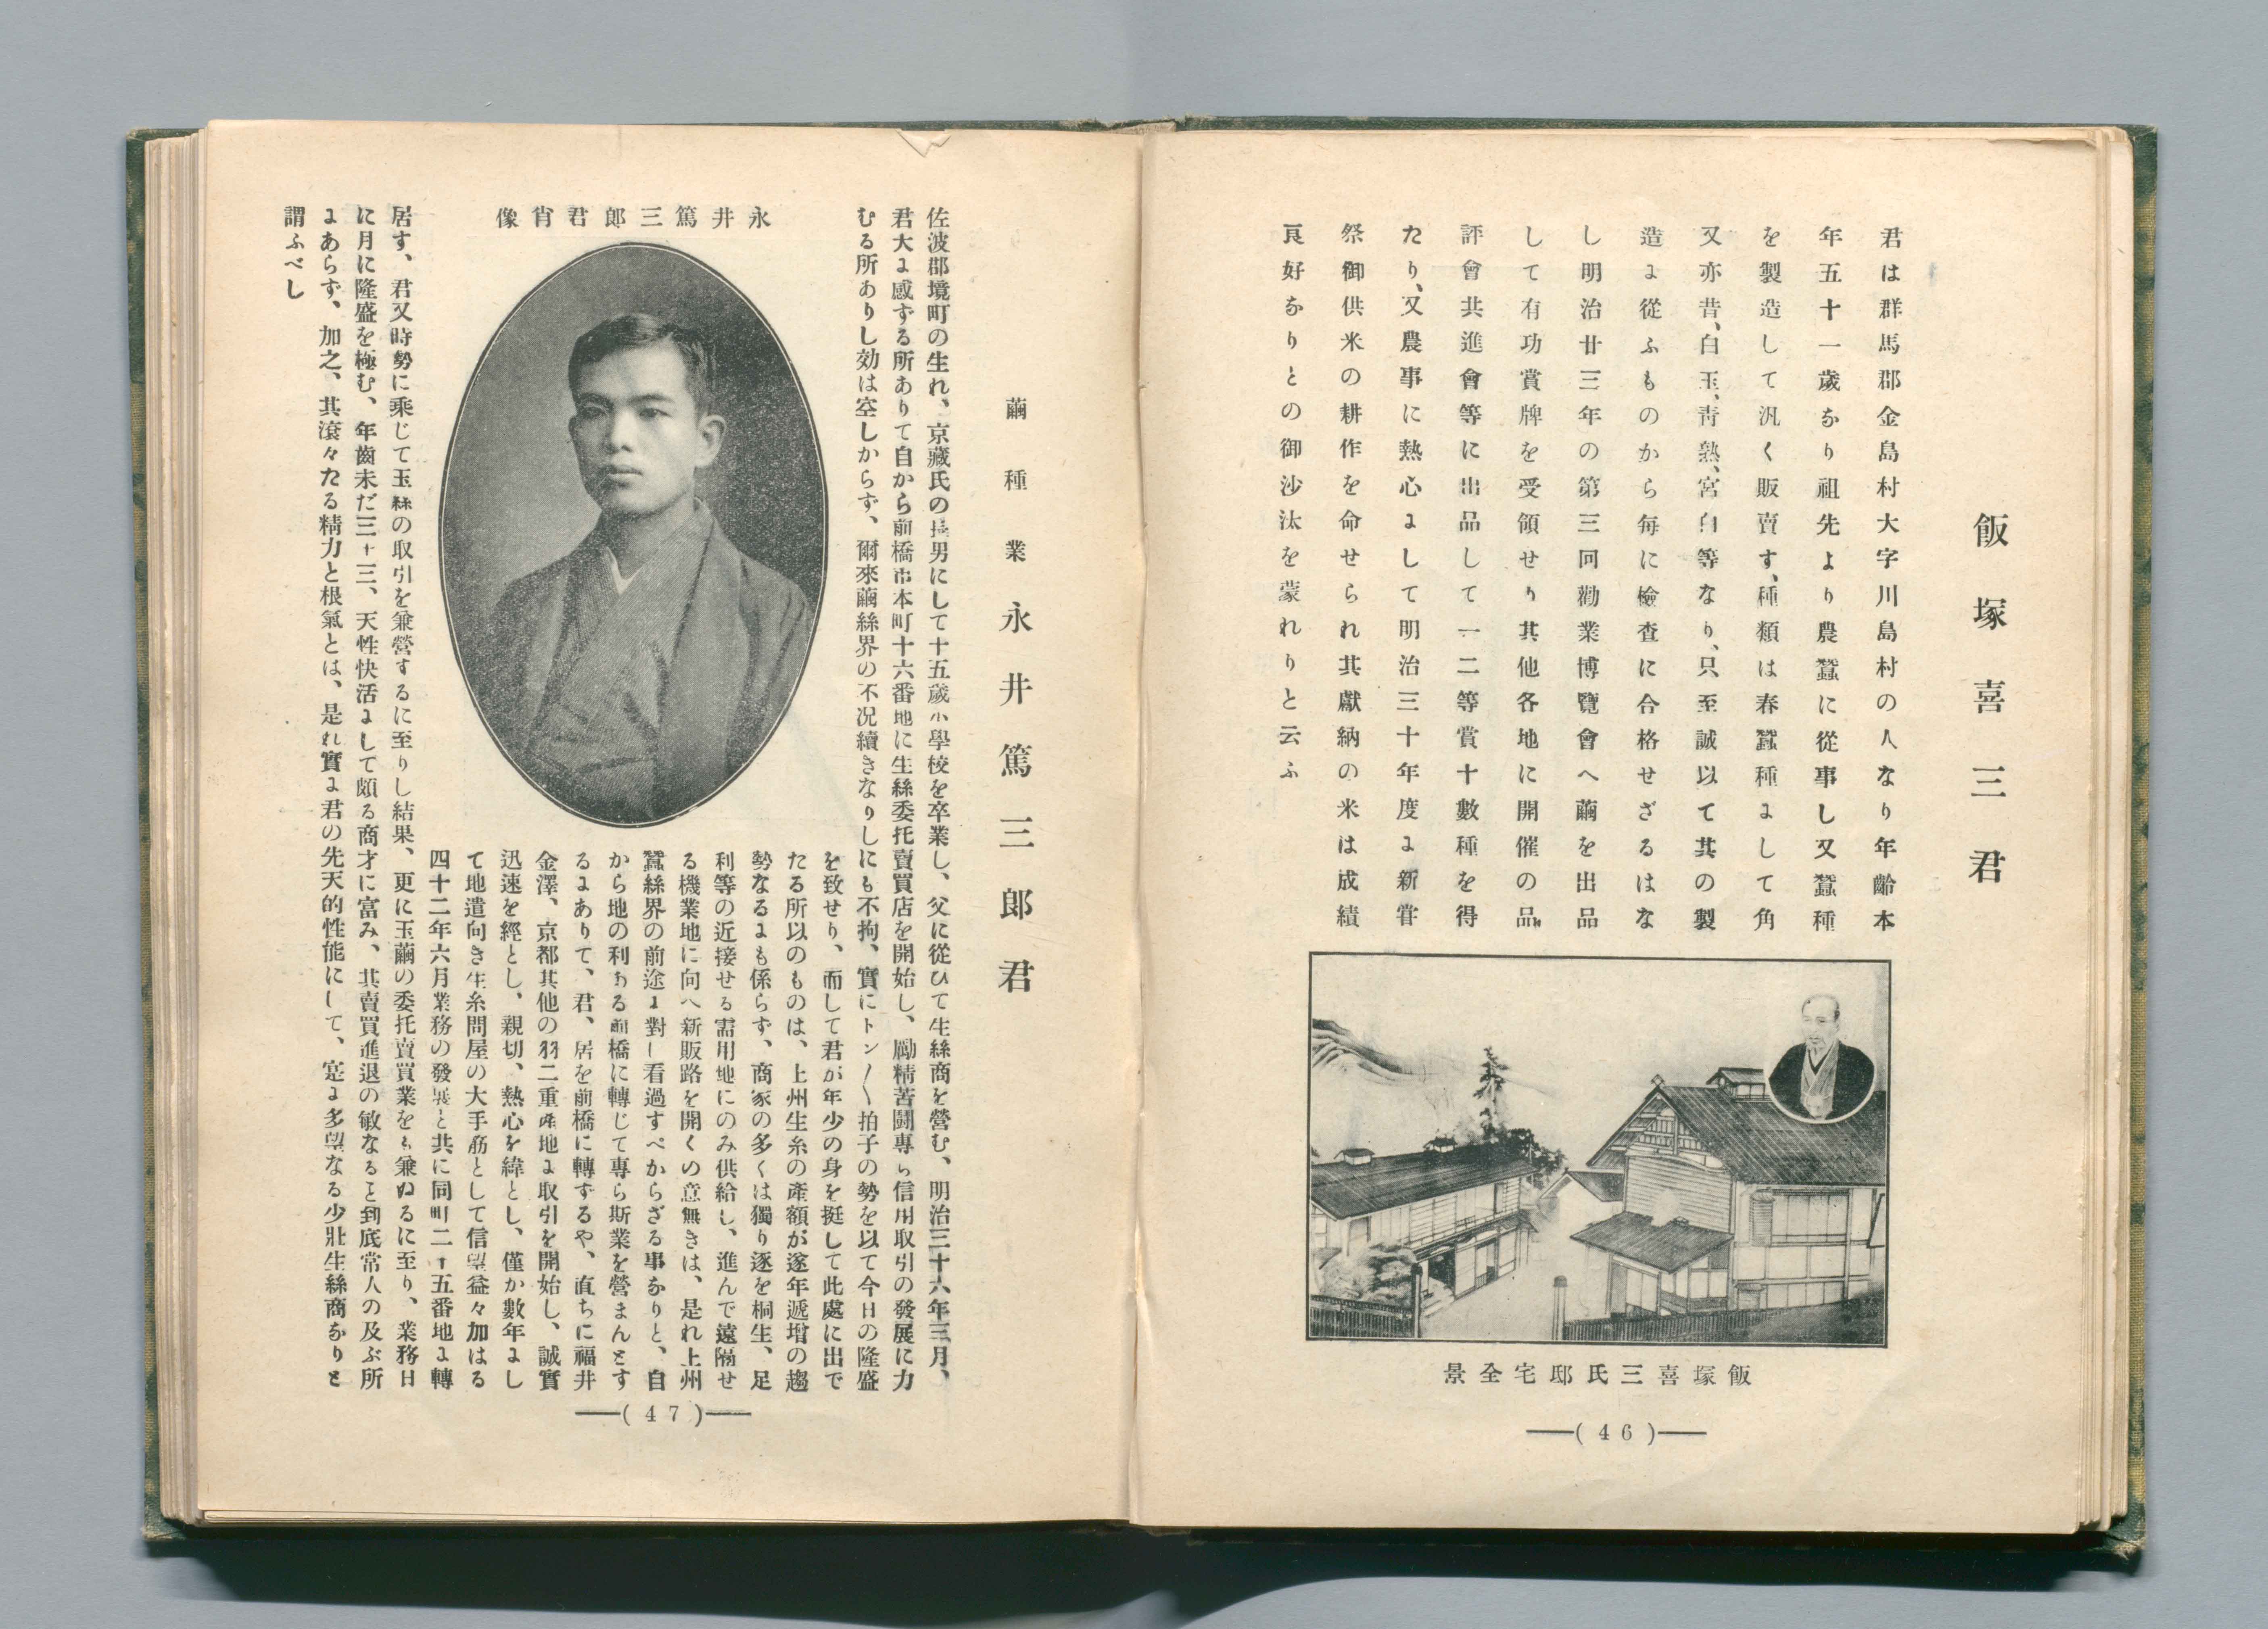 飯塚喜三君
君は群馬郡金島村大字川島村の人なり年齡本
年五十一歲なり祖先より農蠶に從事し又蠶種
を製造して汎く販賣す、種類は春蠶種にして角
又亦昔、白玉、靑熟、宮白等なり、只至誠以て其の製
造に從ふものから每に檢查に合格せざるはな
し明治廿三年の第三回勸業博覽會へ繭を出品
して有功賞牌を受領せり其他各地に開催の品
評會共進會等に出品して一二等賞十數種を得
たり、又農事に熱心にして明治三十年度に新甞
祭御供米の耕作を命せられ其獻納の米は成績
良好なりとの御沙汰を蒙れりと云ふ
飯塚喜三氏邸宅全景
―(46)―
繭種業 永井篤三郎君
佐波郡境町の生れ、京藏氏の長男にして十五歲小學校を卒業し、父に從ひて生絲商を營む、明治三十六年三月、
君大に感ずる所ありて自から前橋市本町十六番地に生絲委托賣買店を開始し、勵精苦鬪專ら信用取引の發展に力
むる所ありし効は空しからず、爾來繭絲界の不況續きなりしにも不拘、實にトン〱拍子の勢を以て今日の隆盛
を致せり、而して君が年少の身を挺して此處に出で
たる所以のものは、上州生糸の產額が遂年遞增の趨
勢なるにも係らず、商家の多くは獨り逐を桐生、足
利等の近接せる需用地にのみ供給し、進んで遠隔せ
る機業地に向へ新販路を開くの意無きは、是れ上州
蠶絲界の前途に對し看過すべからざる事なりと、自
から地の利ある前橋に轉じて專ら斯業を營まんとす
るにありて、君、居を前橋に轉ずるや、直ちに福井
金澤、京都其他の羽二重產地に取引を開始し、誠實
迅速を經とし、親切、熱心を緯とし、僅か數年にし
て地遣向き生糸問屋の大手筋として信望益々加はる
四十二年六月業務の發展と共に同町二十五番地に轉
永井篤三郎君肖像
居す、君又時勢に乘じて玉絲の取引を兼營するに至りし結果、更に玉繭の委托賣買業をも兼ぬるに至り、業務日
に月に隆盛を極む、年齒未だ三十三、天性快活にして頗る商才に富み、其賣買進退の敏なること到底常人の及ぶ所
にあらず、加之、其滾々たる精力と根氣とは、是れ實に君の先天的性能にして、寔に多望なる少壯生絲商なりと
謂ふべし
―(47)―